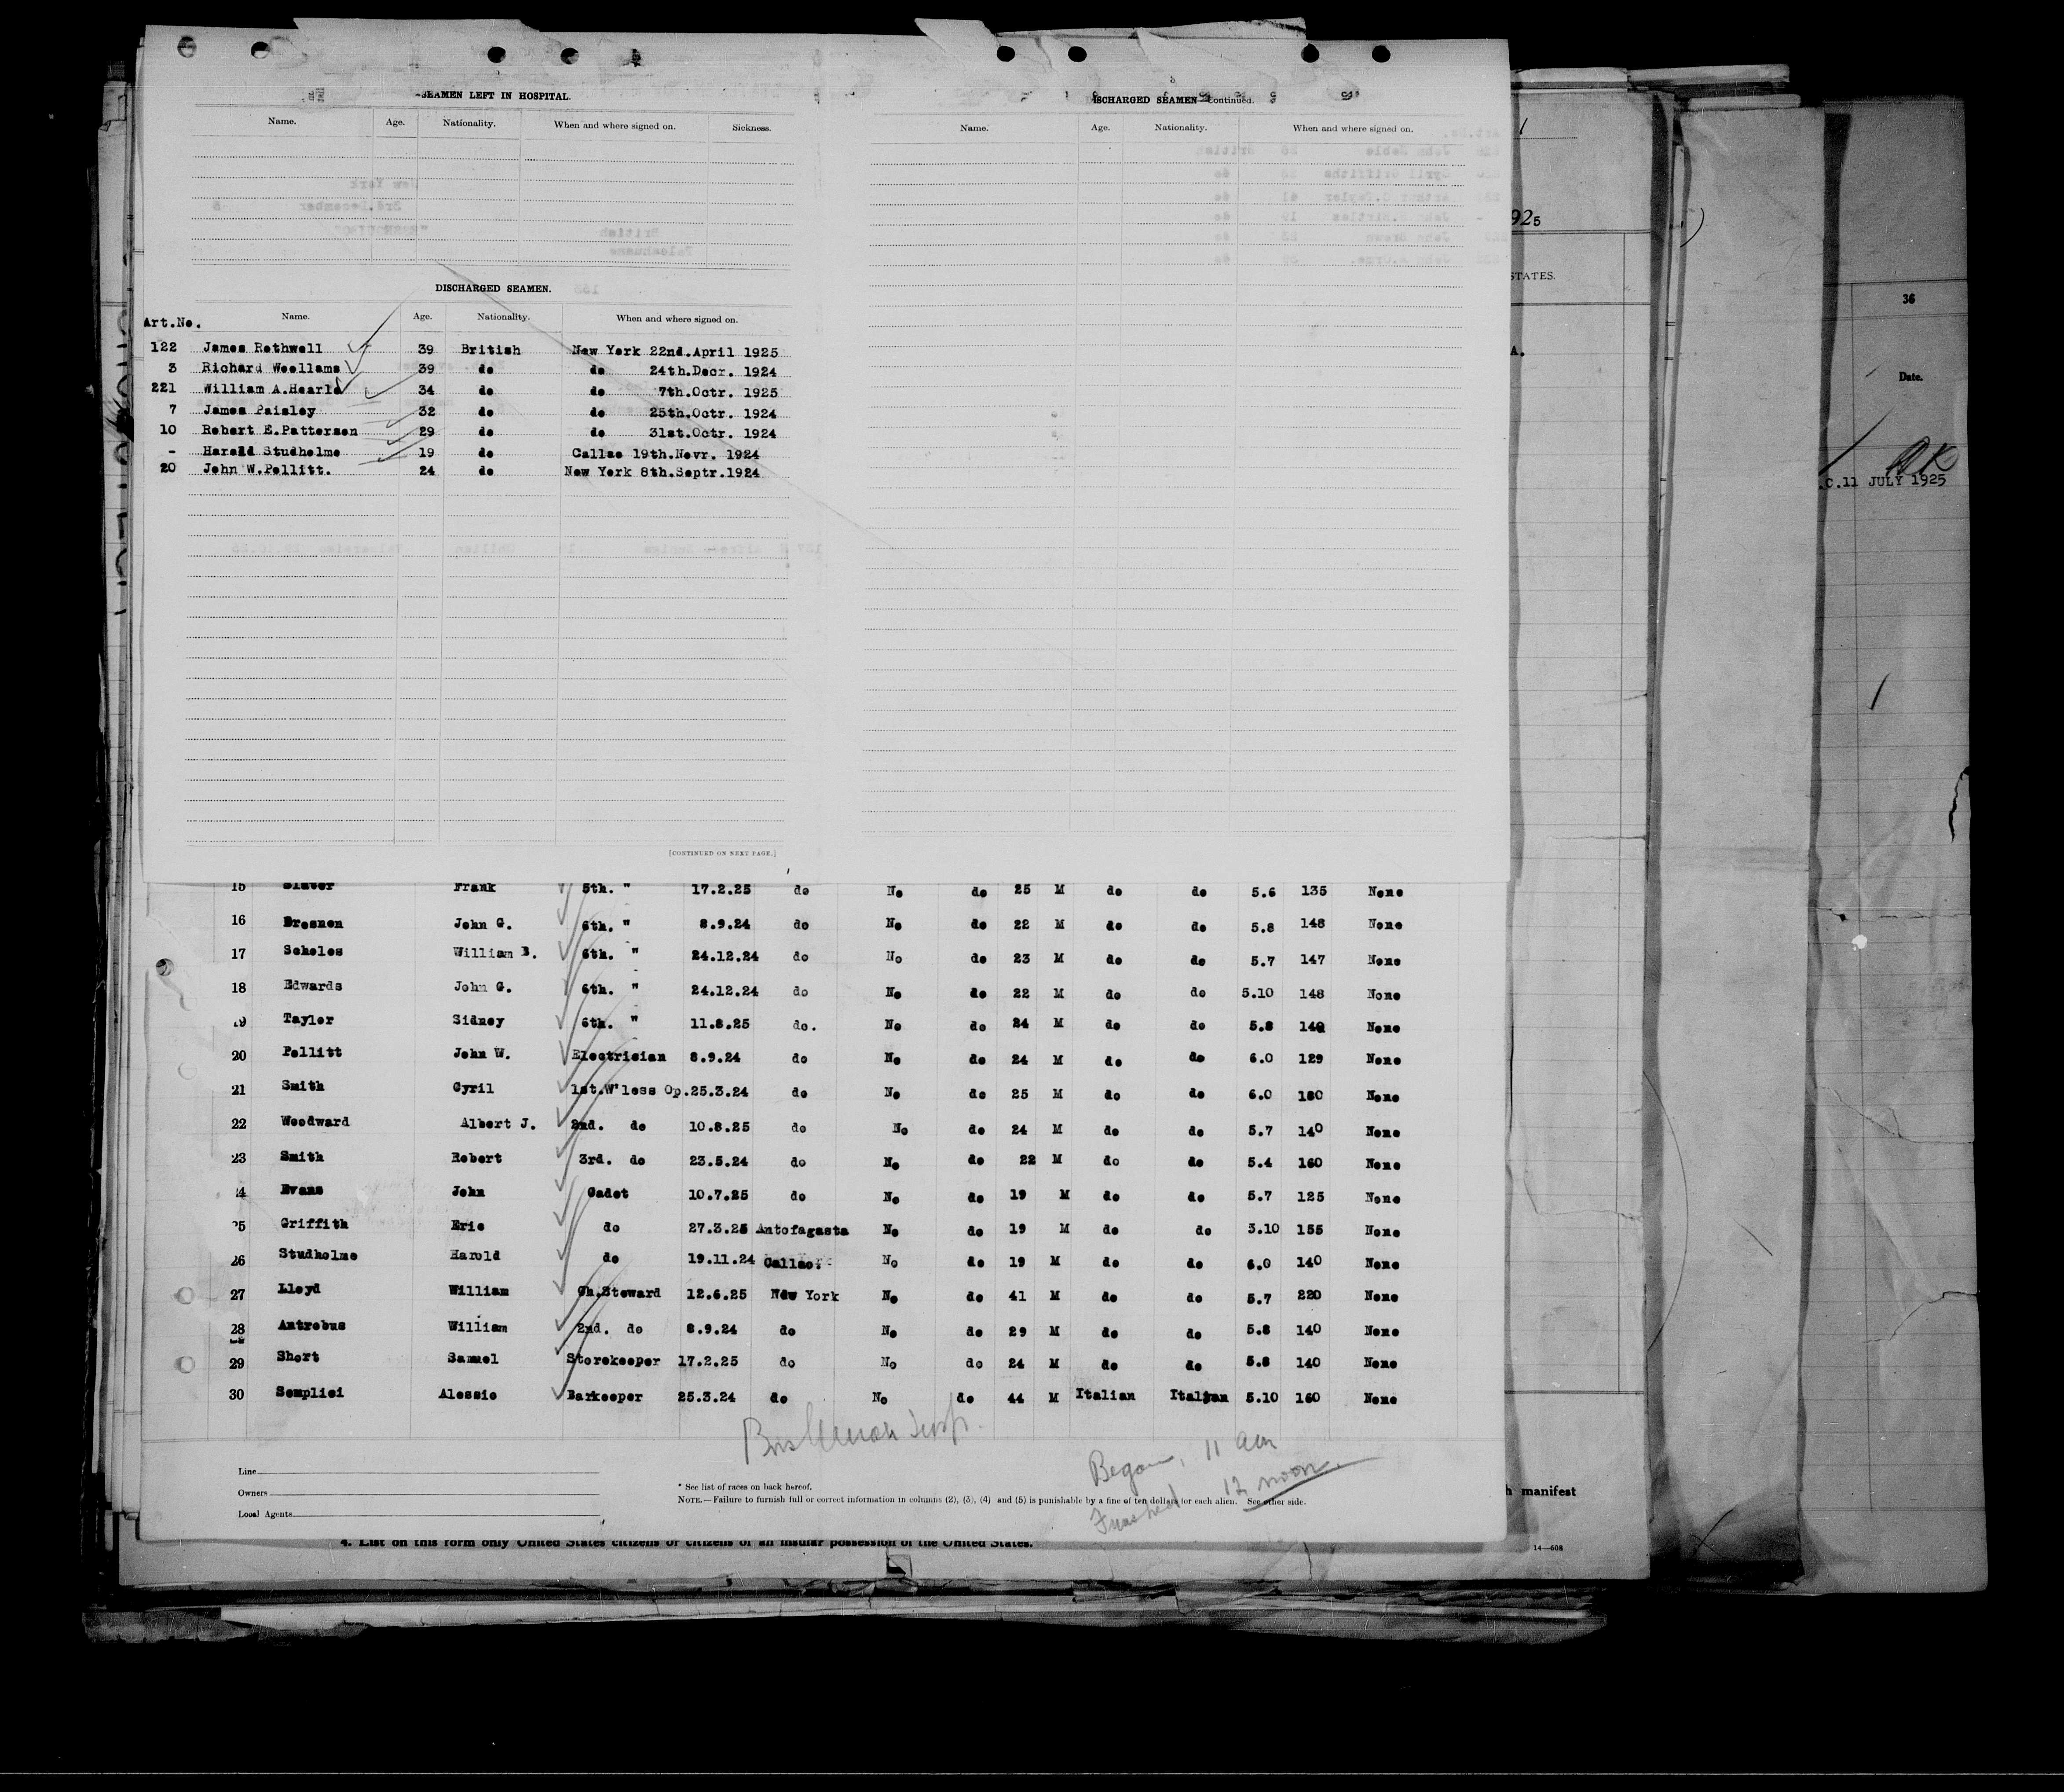 SEAMEN LEFT IN HOSPITAL.
Name. Age. Nationality. When and where signed on. Sickness.
DISCHARGED SEAMEN.
Art.No. Name. Age. Nationality. When and where signed on.
122 James Rothwell 39 British New York 22nd.April 1925
3 Richard Woollams 39 do do 24th.Decr. 1924
221 William A.Hearle 34 do do 7th.Octr. 1925
7 James Paisley 32 do do 25th.Octr. 1924
10 Robert E.Patterson 29 do do 31st.Octr. 1924
- Harold Studholme 19 do Callao 19th.Novr. 1924
20 John W.Pollitt. 24 do New York 8th.Septr.1924
[CONTINUED ON NEXT PAGE.]
DISCHARGED SEAMEN—Continued.
Name. Age. Nationality. When and where signed on.
925
STATES.
A.
36
Date.
OK
.C.11 JULY 1925
15 Slater Frank 5th. " 17.2.25 do No do 25 M do do 5.6 135 None
16 Brosnon John G. 6th. " 8.9.24 do No do 22 M do do 5.8 148 None
17 Scholes William B. 6th. " 24.12.24 do No do 23 M do do 5.7 147 None
18 Edwards John G. 6th. " 24.12.24 do No do 22 M do do 5.10 148 None
19 Taylor Sidney 6th. " 11.8.25 do. No do 24 M do do 5.8 140 None
20 Pollitt John W. Electrician 8.9.24 do No do 24 M do do 6.0 129 None
21 Smith Cyril 1st.W'less Op. 25.3.24 do No do 25 M do do 6.0 180 None
22 Woodward Albert J. 2nd. do 10.8.25 do No do 24 M do do 5.7 140 None
23 Smith Robert 3rd. do 23.5.24 do No do 22 M do do 5.4 160 None
24 Evans John Cadet 10.7.25 do No do 19 M do do 5.7 125 None
25 Griffith Eric do 27.3.25 Antofagasta No do 19 M do do 5.10 155 None
26 Studholme Harold do 19.11.24 Callao. No do 19 M do do 6.0 140 None
27 Lloyd William Ch.Steward 12.6.25 New York No do 41 M do do 5.7 220 None
28 Antrobus William 2nd. do 8.9.24 do No do 29 M do do 5.8 140 None
29 Short Samuel Storekeeper 17.2.25 do No do 24 M do do 5.8 140 None
30 Semplici Alessio Barkeeper 25.3.24 do No do 44 M Italian Italian 5.10 160 None
Began, 11 am
Finished 12 noon.
Line
Owners
Local Agents
* See list of races on back hereof.
NOTE.—Failure to furnish full or correct information in columns (2), (3), (4) and (5) is punishable by a fine of ten dollars for each alien. See other side.
manifest
4. List on this form only United States citizens or citizens of an insular possession of the United States.
14—608